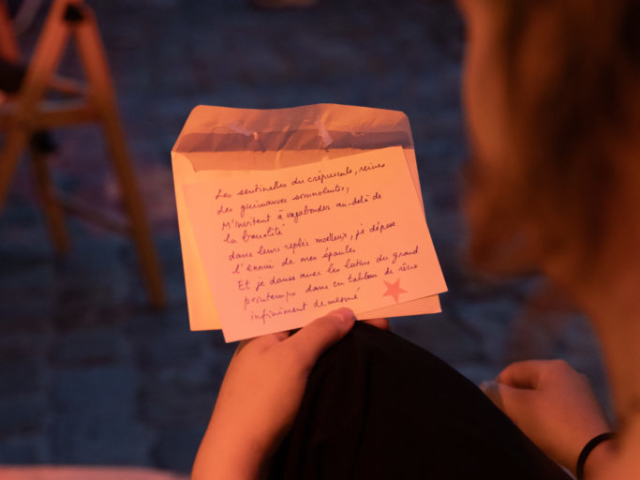 Les sentinelles du crépuscule, reines
des guimauves somnolentes,
M'invitent à vagabonder au-delà de
la banalité
dans leurs replis moelleux, je dépose
l'ennui de mes épaules
Et je danse avec les lutins du grand
printemps dans un tableau de rêve
infiniment